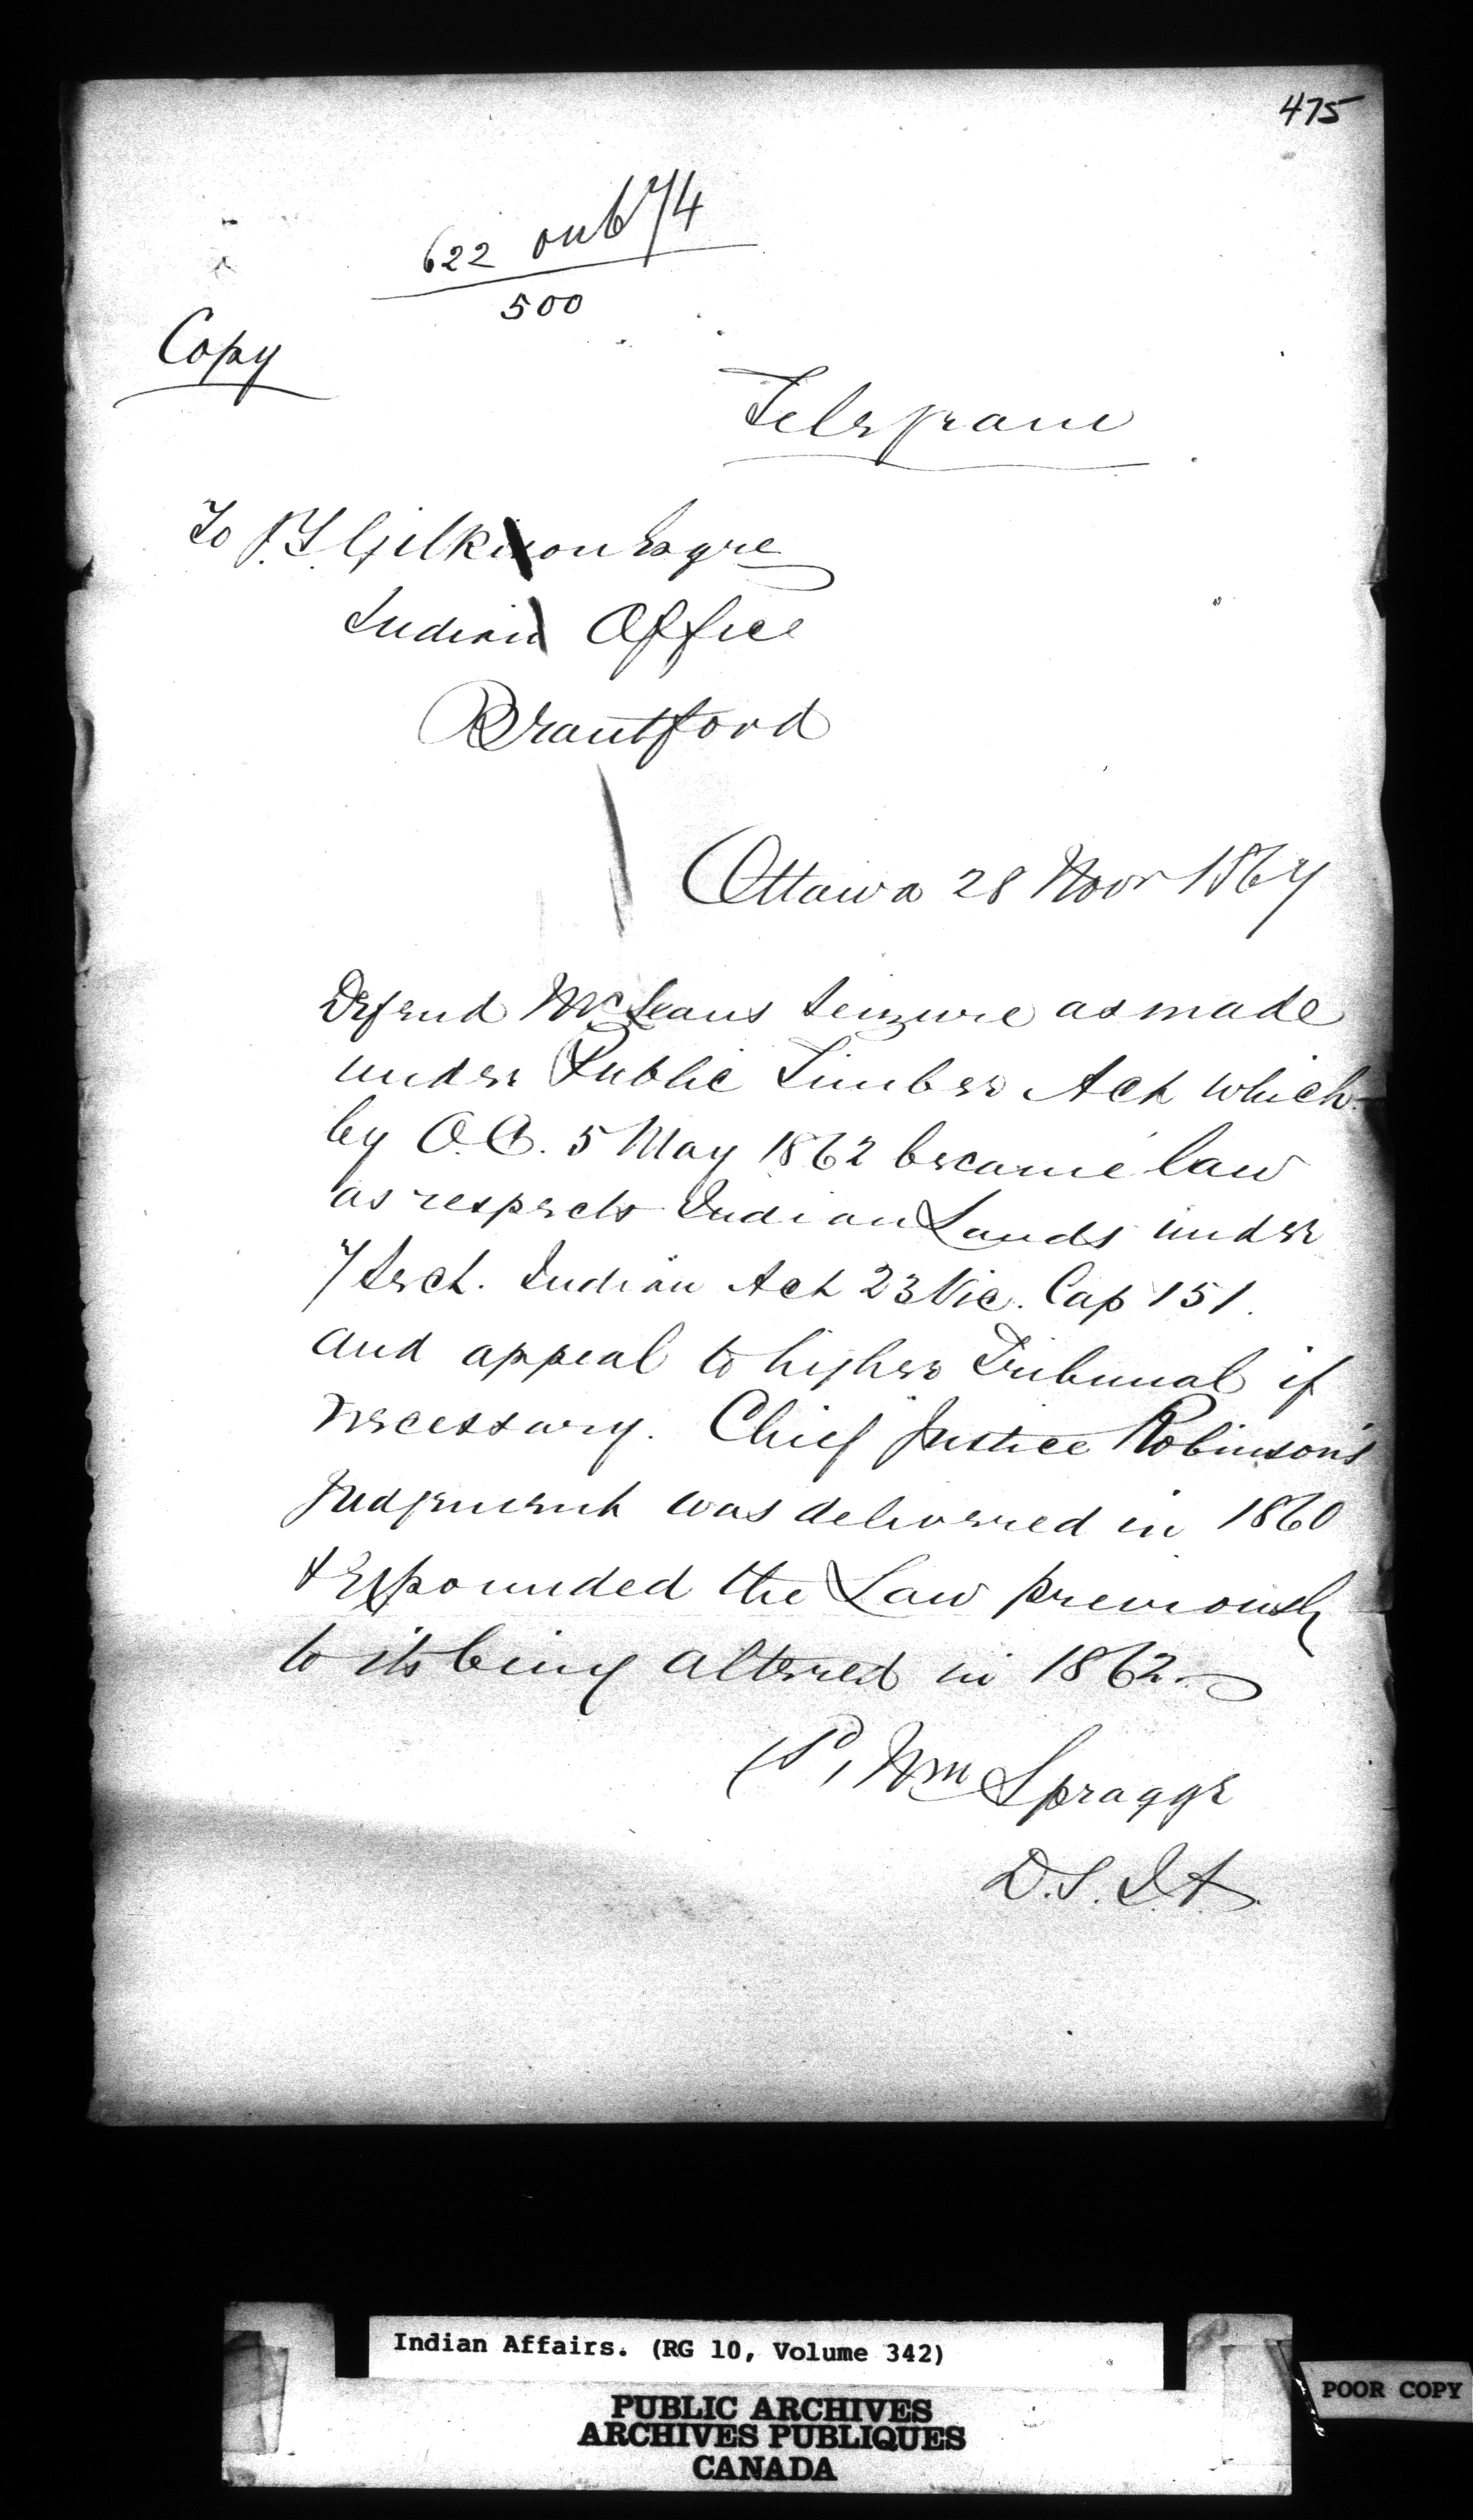 475
622 on 674
500
Copy
Telegram
To J.T. Gilkison Esqre
Indian Office
Brantford
Ottawa 28 Novr 1867
Defend McLeans seizure as made
under Public Timber Act which
by O.C. 5 May 1862 became law
as respects Indian Lands under
7 Sect. Indian Act 23 Vic. Cap 151.
and appeal to higher Tribunal if
necessary. Chief Justice Robinson's
Judgement was delivered in 1860
& Expounded the Law previously
to its being altered in 1862.
Wm Spragge
D.S.I.A.
Indian Affairs. (RG 10, Volume 342)
PUBLIC ARCHIVES
ARCHIVES PUBLIQUES
CANADA
POOR COPY